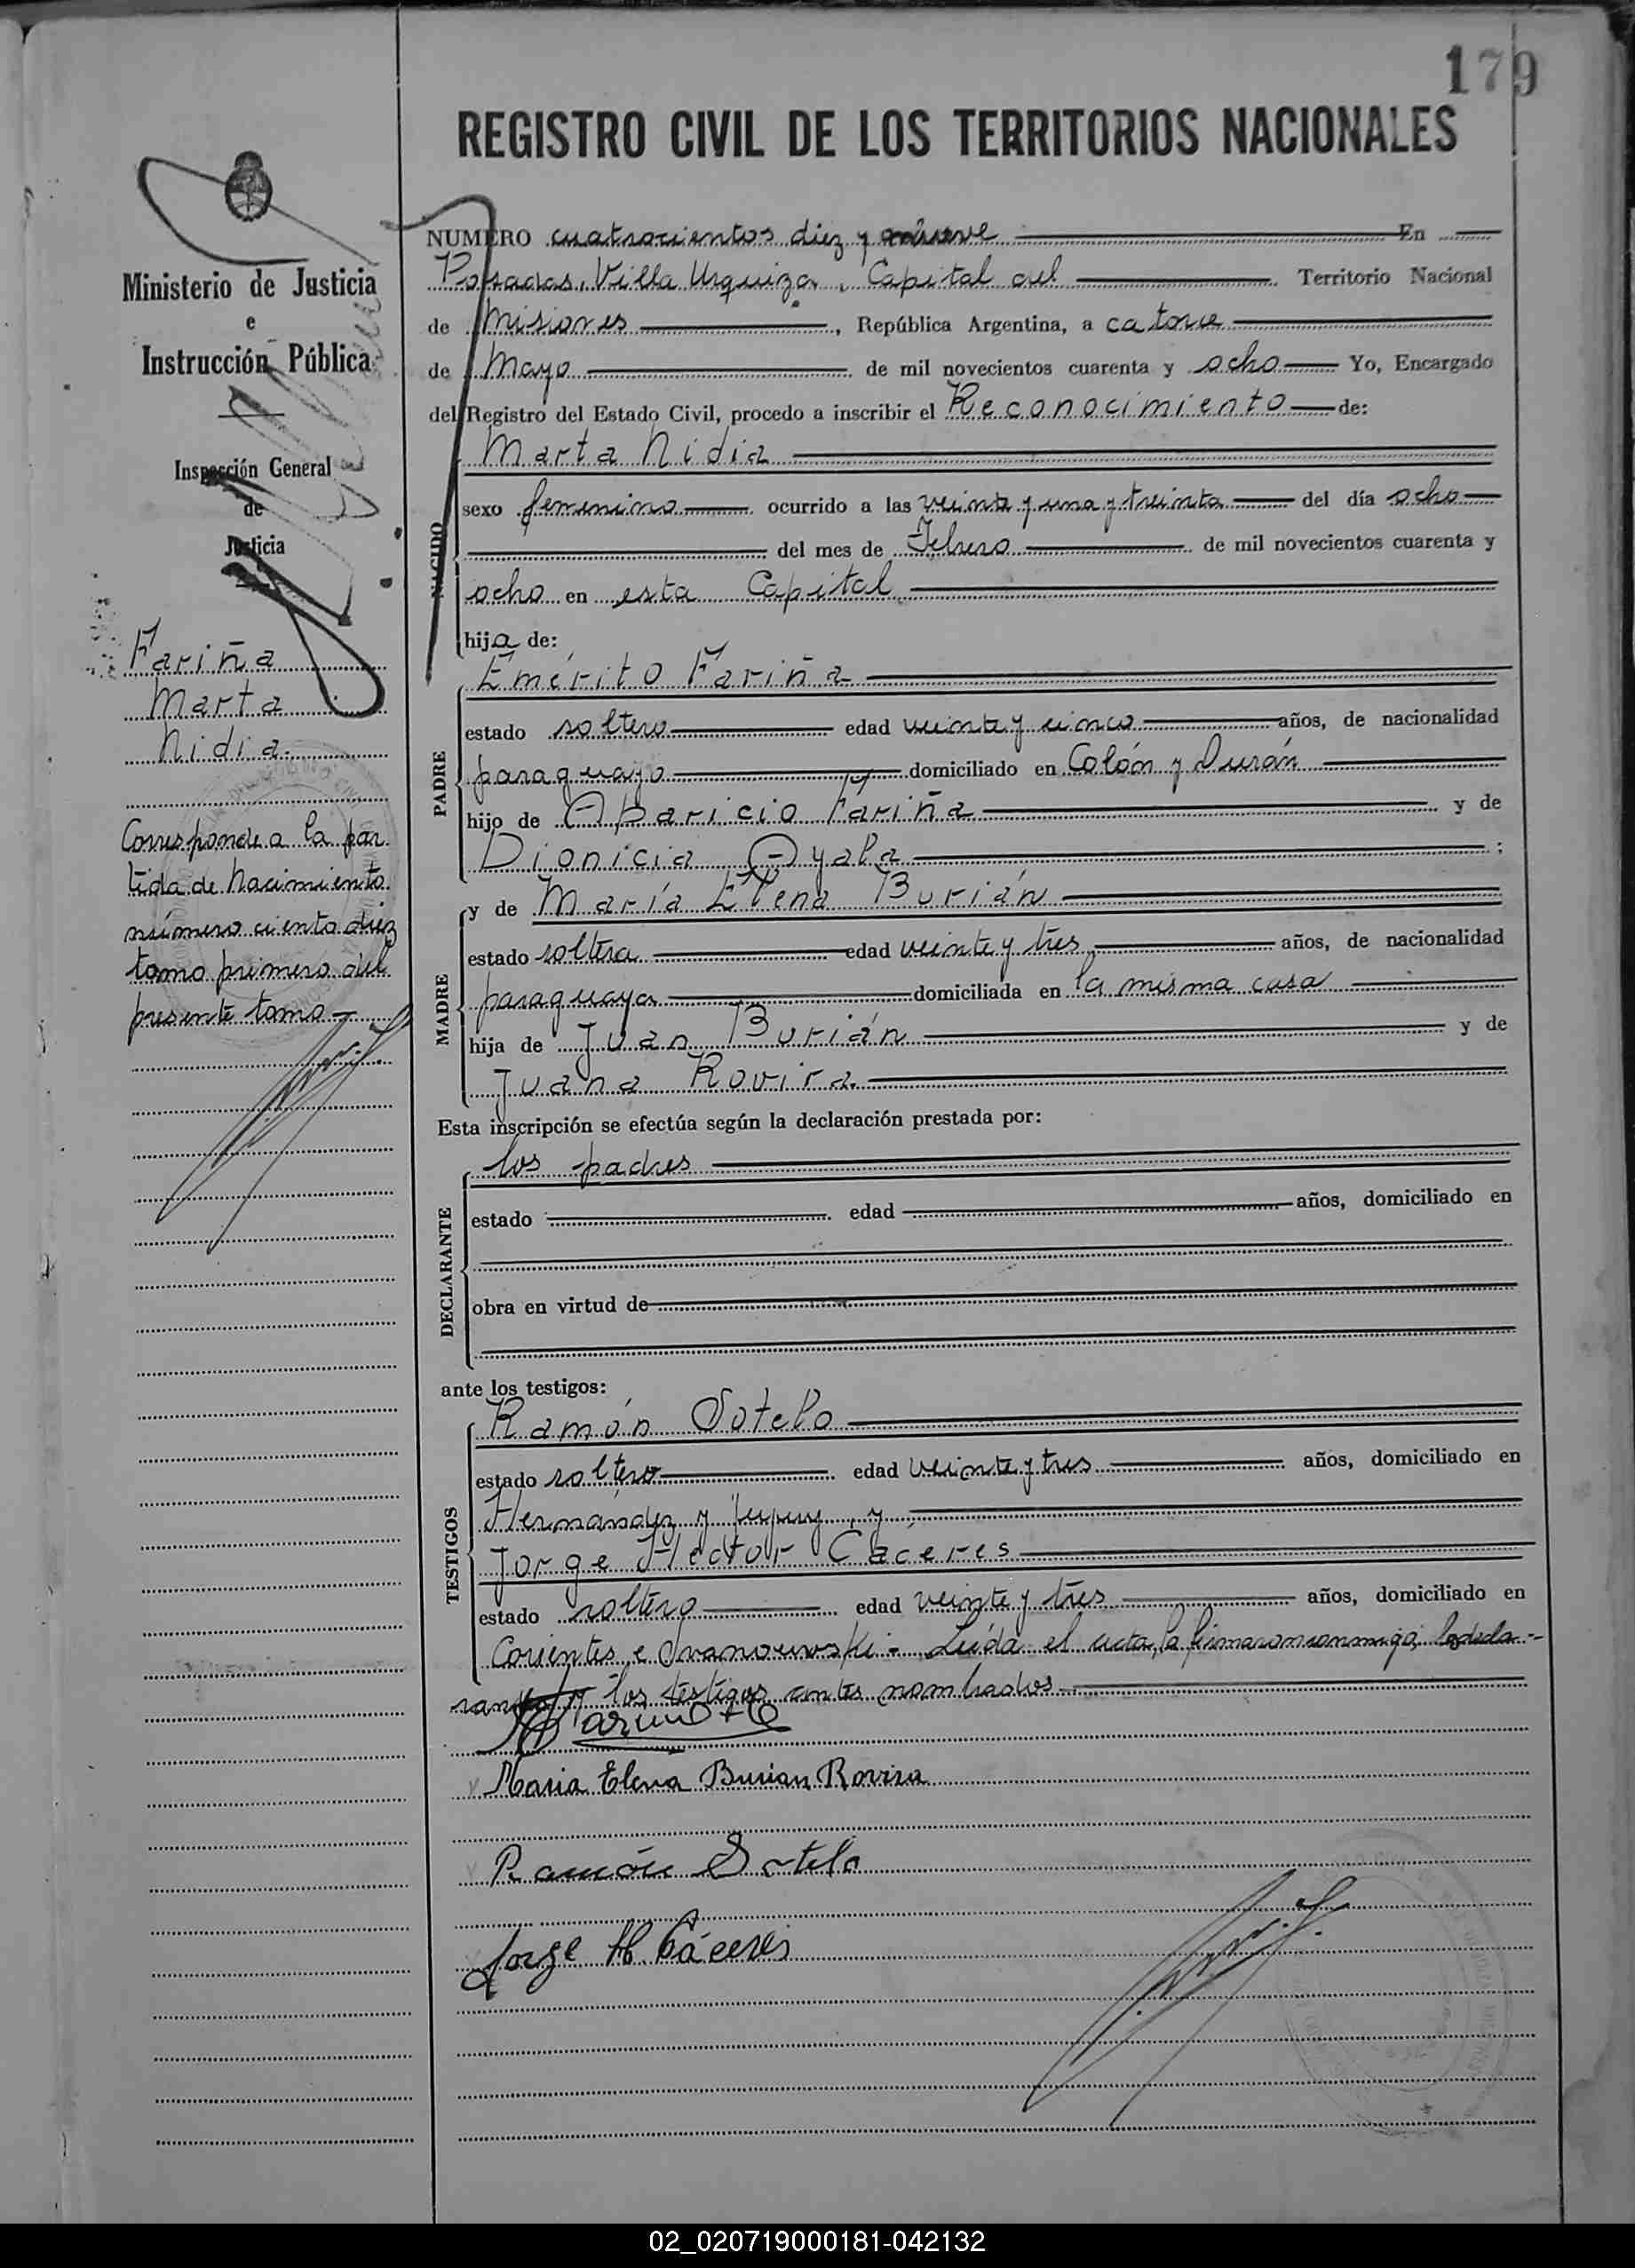 179
REGISTRO CIVIL DE LOS TERRITORIOS NACIONALES
Ministerio de Justicia
e
Instrucción Pública
Inspección General
de
Justicia
Fariña
Marta
Nidia
Corresponde a la par
tida de nacimiento
número ciento diez
tomo primero del
presente tomo
NUMERO cuatrocientos diez y nueve En
Posadas, Villa Urquiza, Capital del Territorio Nacional
de Misiones, República Argentina, a catorce
de Mayo de mil novecientos cuarenta y ocho Yo, Encargado
del Registro del Estado Civil, procedo a inscribir el Reconocimiento de:
NACIDO
Marta Nidia
sexo femenino ocurrido a las veinte y una y treinta del día ocho
del mes de Febrero de mil novecientos cuarenta y
ocho en esta Capital
hija de:
PADRE
Emérito Fariña
estado soltero edad veinte y cinco años, de nacionalidad
paraguayo domiciliado en Colón y Durán
hijo de Aparicio Fariña y de
Dionicia Ayala ;
MADRE
y de María Elena Burián
estado soltera edad veinte y tres años, de nacionalidad
paraguaya domiciliada en la misma casa
hija de Juan Burián y de
Juana Rovira
Esta inscripción se efectúa según la declaración prestada por:
DECLARANTE
los padres
estado edad años, domiciliado en
obra en virtud de
ante los testigos:
TESTIGOS
Ramón Sotelo
estado soltero edad veinte y tres años, domiciliado en
Hernández y Jujuy, y
Jorge Hector Cáceres
estado soltero edad veinte y tres años, domiciliado en
Corientes e Ivanowski - Leída el acta, la firmaron conmigo, los decla-
rantes y los testigos antes nombrados
Maria Elena Burian Rovira
Ramón Sotelo
Jorge H. Cáceres
02_020719000181-042132